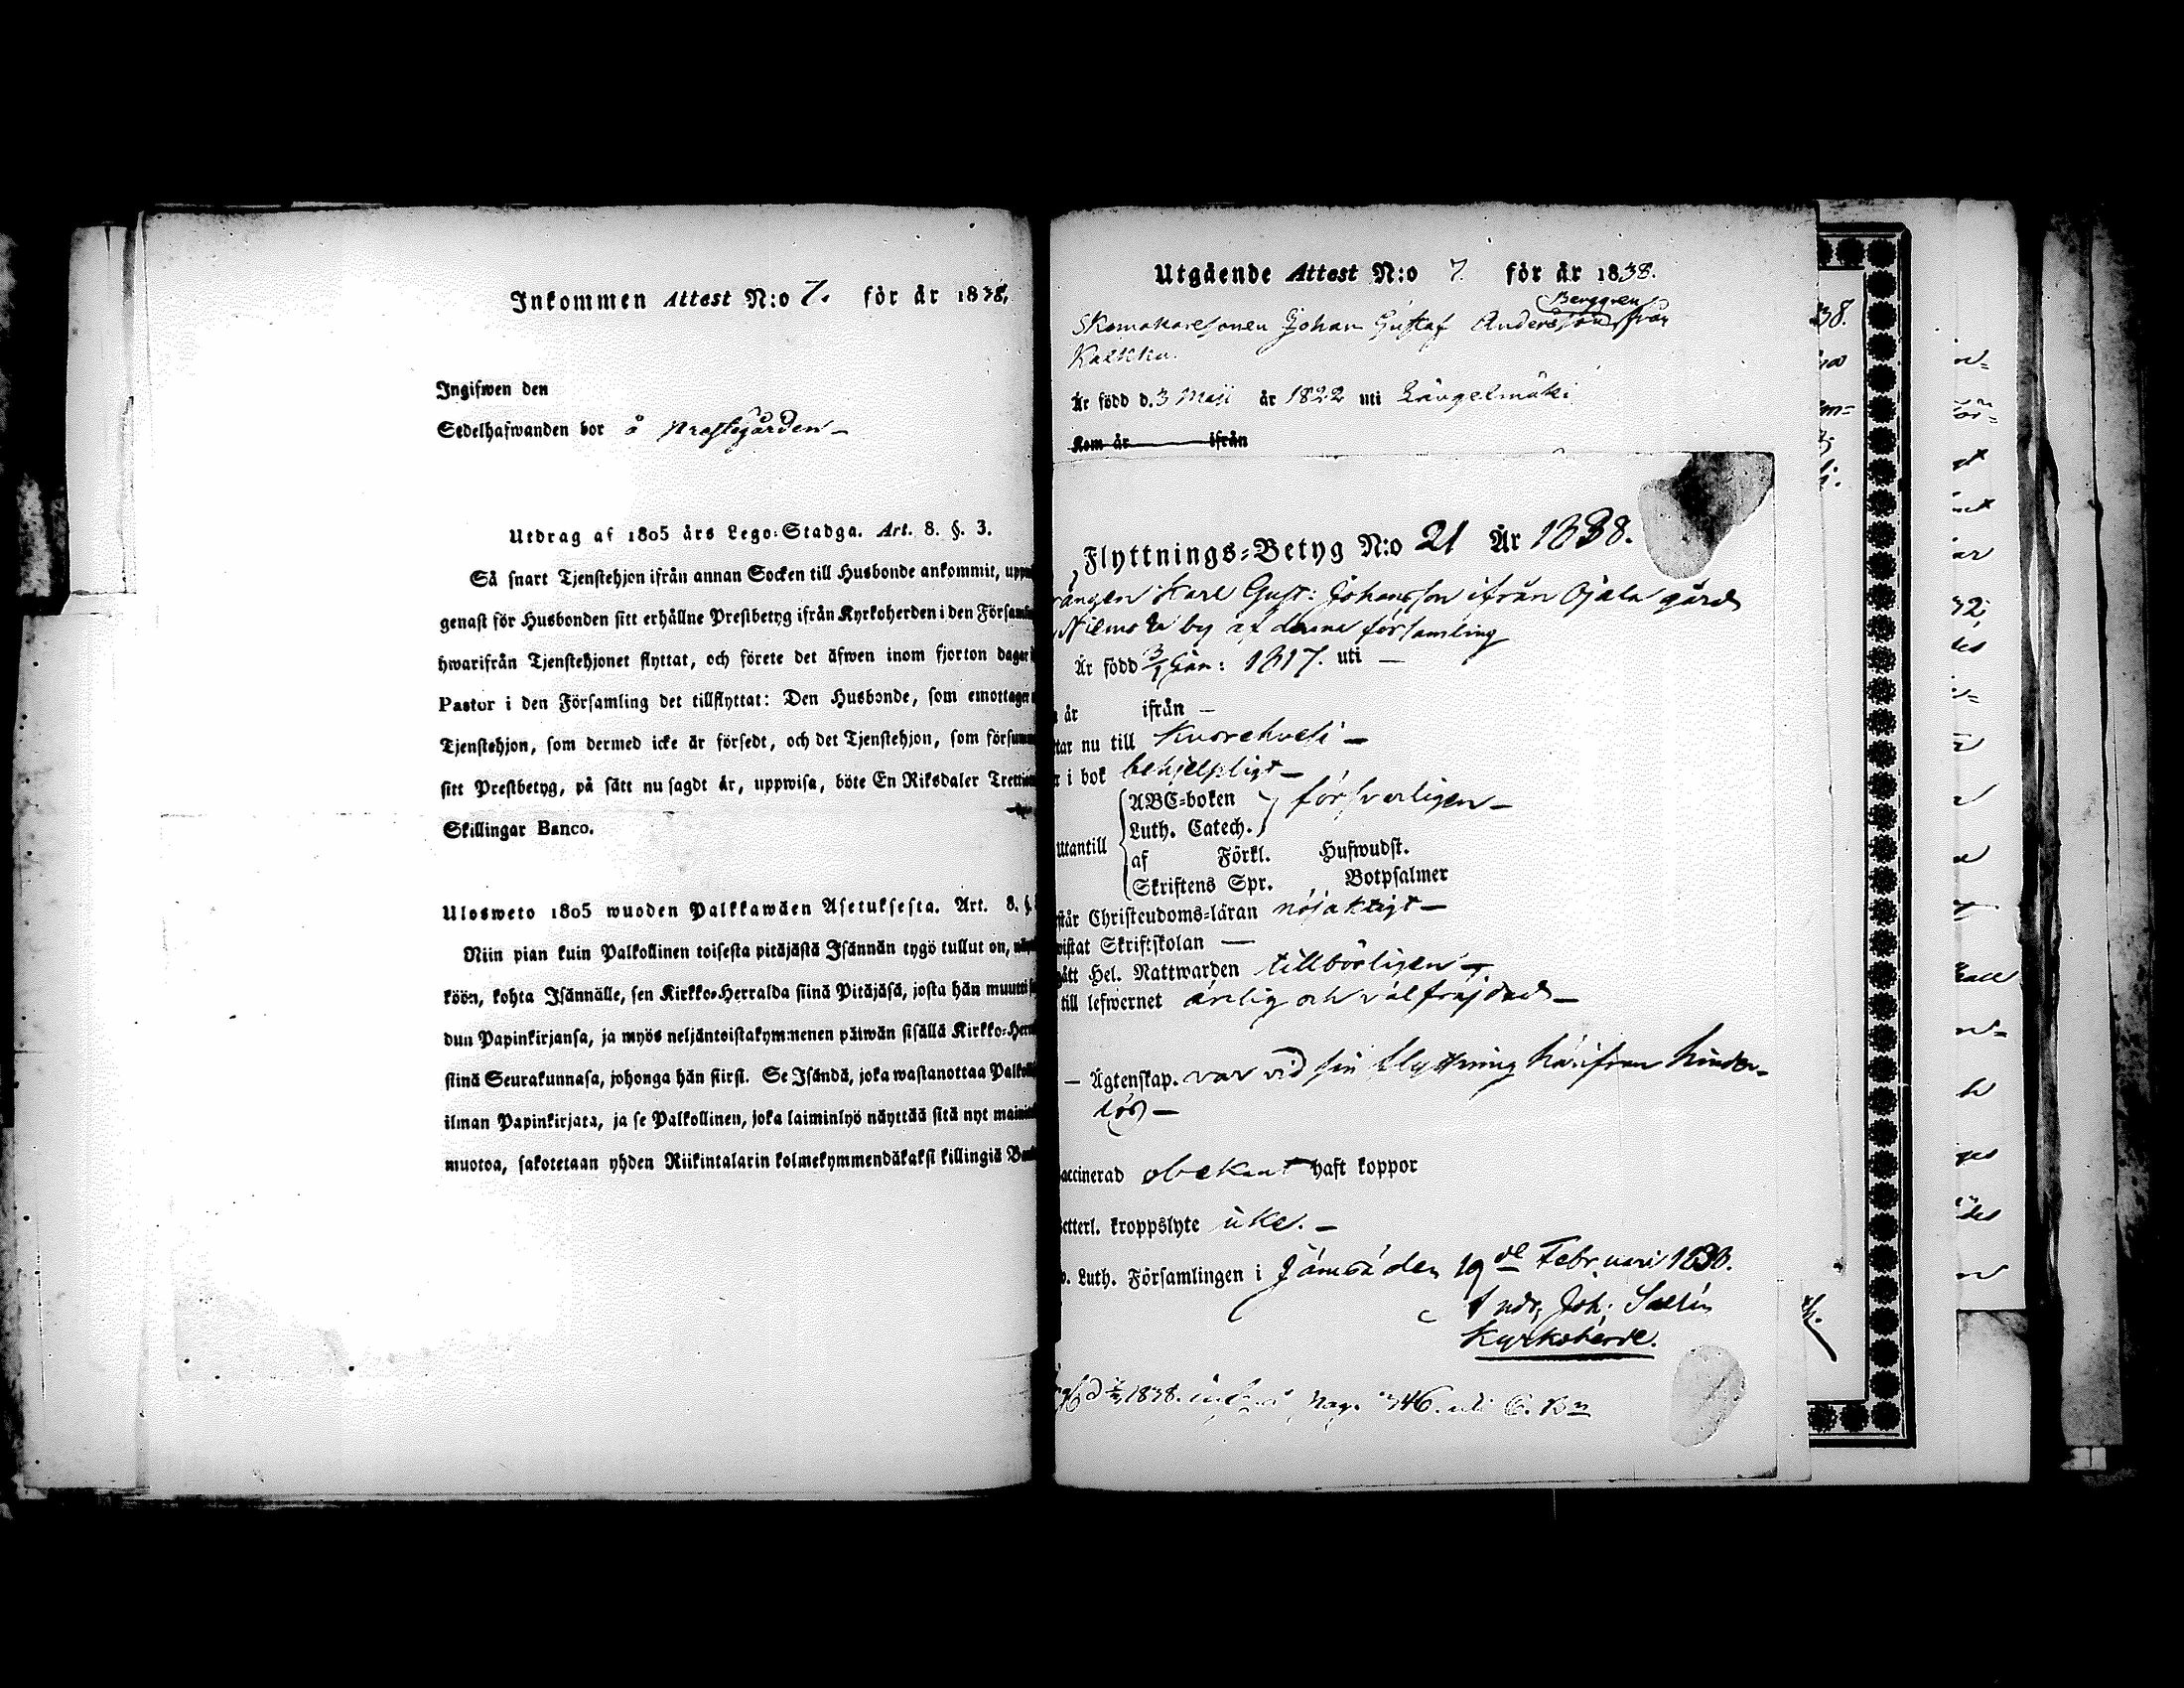 Inkommen Attest N:o 7. för år 1838.
Ingifwen den
Sedelhafwanden bor å Prestegården –
Utdrag af 1805 års Lego-Stadga. Art. 8. §. 3.
Så snart Tjenstehjon ifrån annan Socken till Husbonde ankommit,
genast för Husbonden sitt erhållne Prestbetyg ifrån Kyrkoherden i den
hwarifrån Tjenstehjonet flyttat, och förete det äfwen inom fjorton dagar
Pastor i den Församling det tillflyttat: Den Husbonde, som emottager
Tjenstehjon, som dermed icke är försedt, och det Tjenstehjon, som
sitt Prestbetyg, på sätt nu sagdt är, uppwisa, böte En Riksdaler
Skillingar Banco.
Ulosweto 1805 wuoden Palkkawäen Asetuksesta. Art. 8. §.
Niin pian kuin Palkollinen toisesta pitäjästä Isännän tygö tullut on,
köön, kohta Isännälle, sen Kirkko-Herralda siinä Pitäjäsä, josta hän muutti
dun Papinkirjansa, ja myös neljäntoistakymmenen päiwän sisällä
siinä Seurakunnasa, johonga hän siirsi. Se Isändä, joka wastanottaa
ilman Papinkirjata, ja se Palkollinen, joka laiminlyö näyttää sitä nyt
muotoa, sakotetaan yhden Riikintalarin kolmekymmendäkaksi killingiä
Utgående Attest N:o 7. för år 1838.
Berggren
Skomakaresonen Johan Gustaf Andersson från
Kalkku.
Är född d. 3 Maji år 1822 uti Längelmäki
Kom år ifrån
Flyttnings-Betyg N:o 21 År 1838.
Karl Gust: Johansson ifrån Ojala gård
by af denna församling
Är född 3/1 Jan: 1817. uti –
år ifrån –
nu till Kuorehvesi –
i bok behjelpligt –
ABC-boken
Luth. Catech. försvarligen –
Utantill
af Förkl. Hufwudst.
Skriftens Spr. Botpsalmer
Christendoms-läran nöjaktigt –
Skriftskolan –
Hel. Nattwarden tillbörligen –
till lefwernet ärlig och välfrejdad –
– Ägtenskap. var vid sin flyttning härifrån hinder-
lös –
obekant haft koppor
kroppslyte icke. –
Luth. Församlingen i Jämsä den 19de Februari 1838.
Andr. Joh.
Kyrkoherde.
1838. pag. 346.